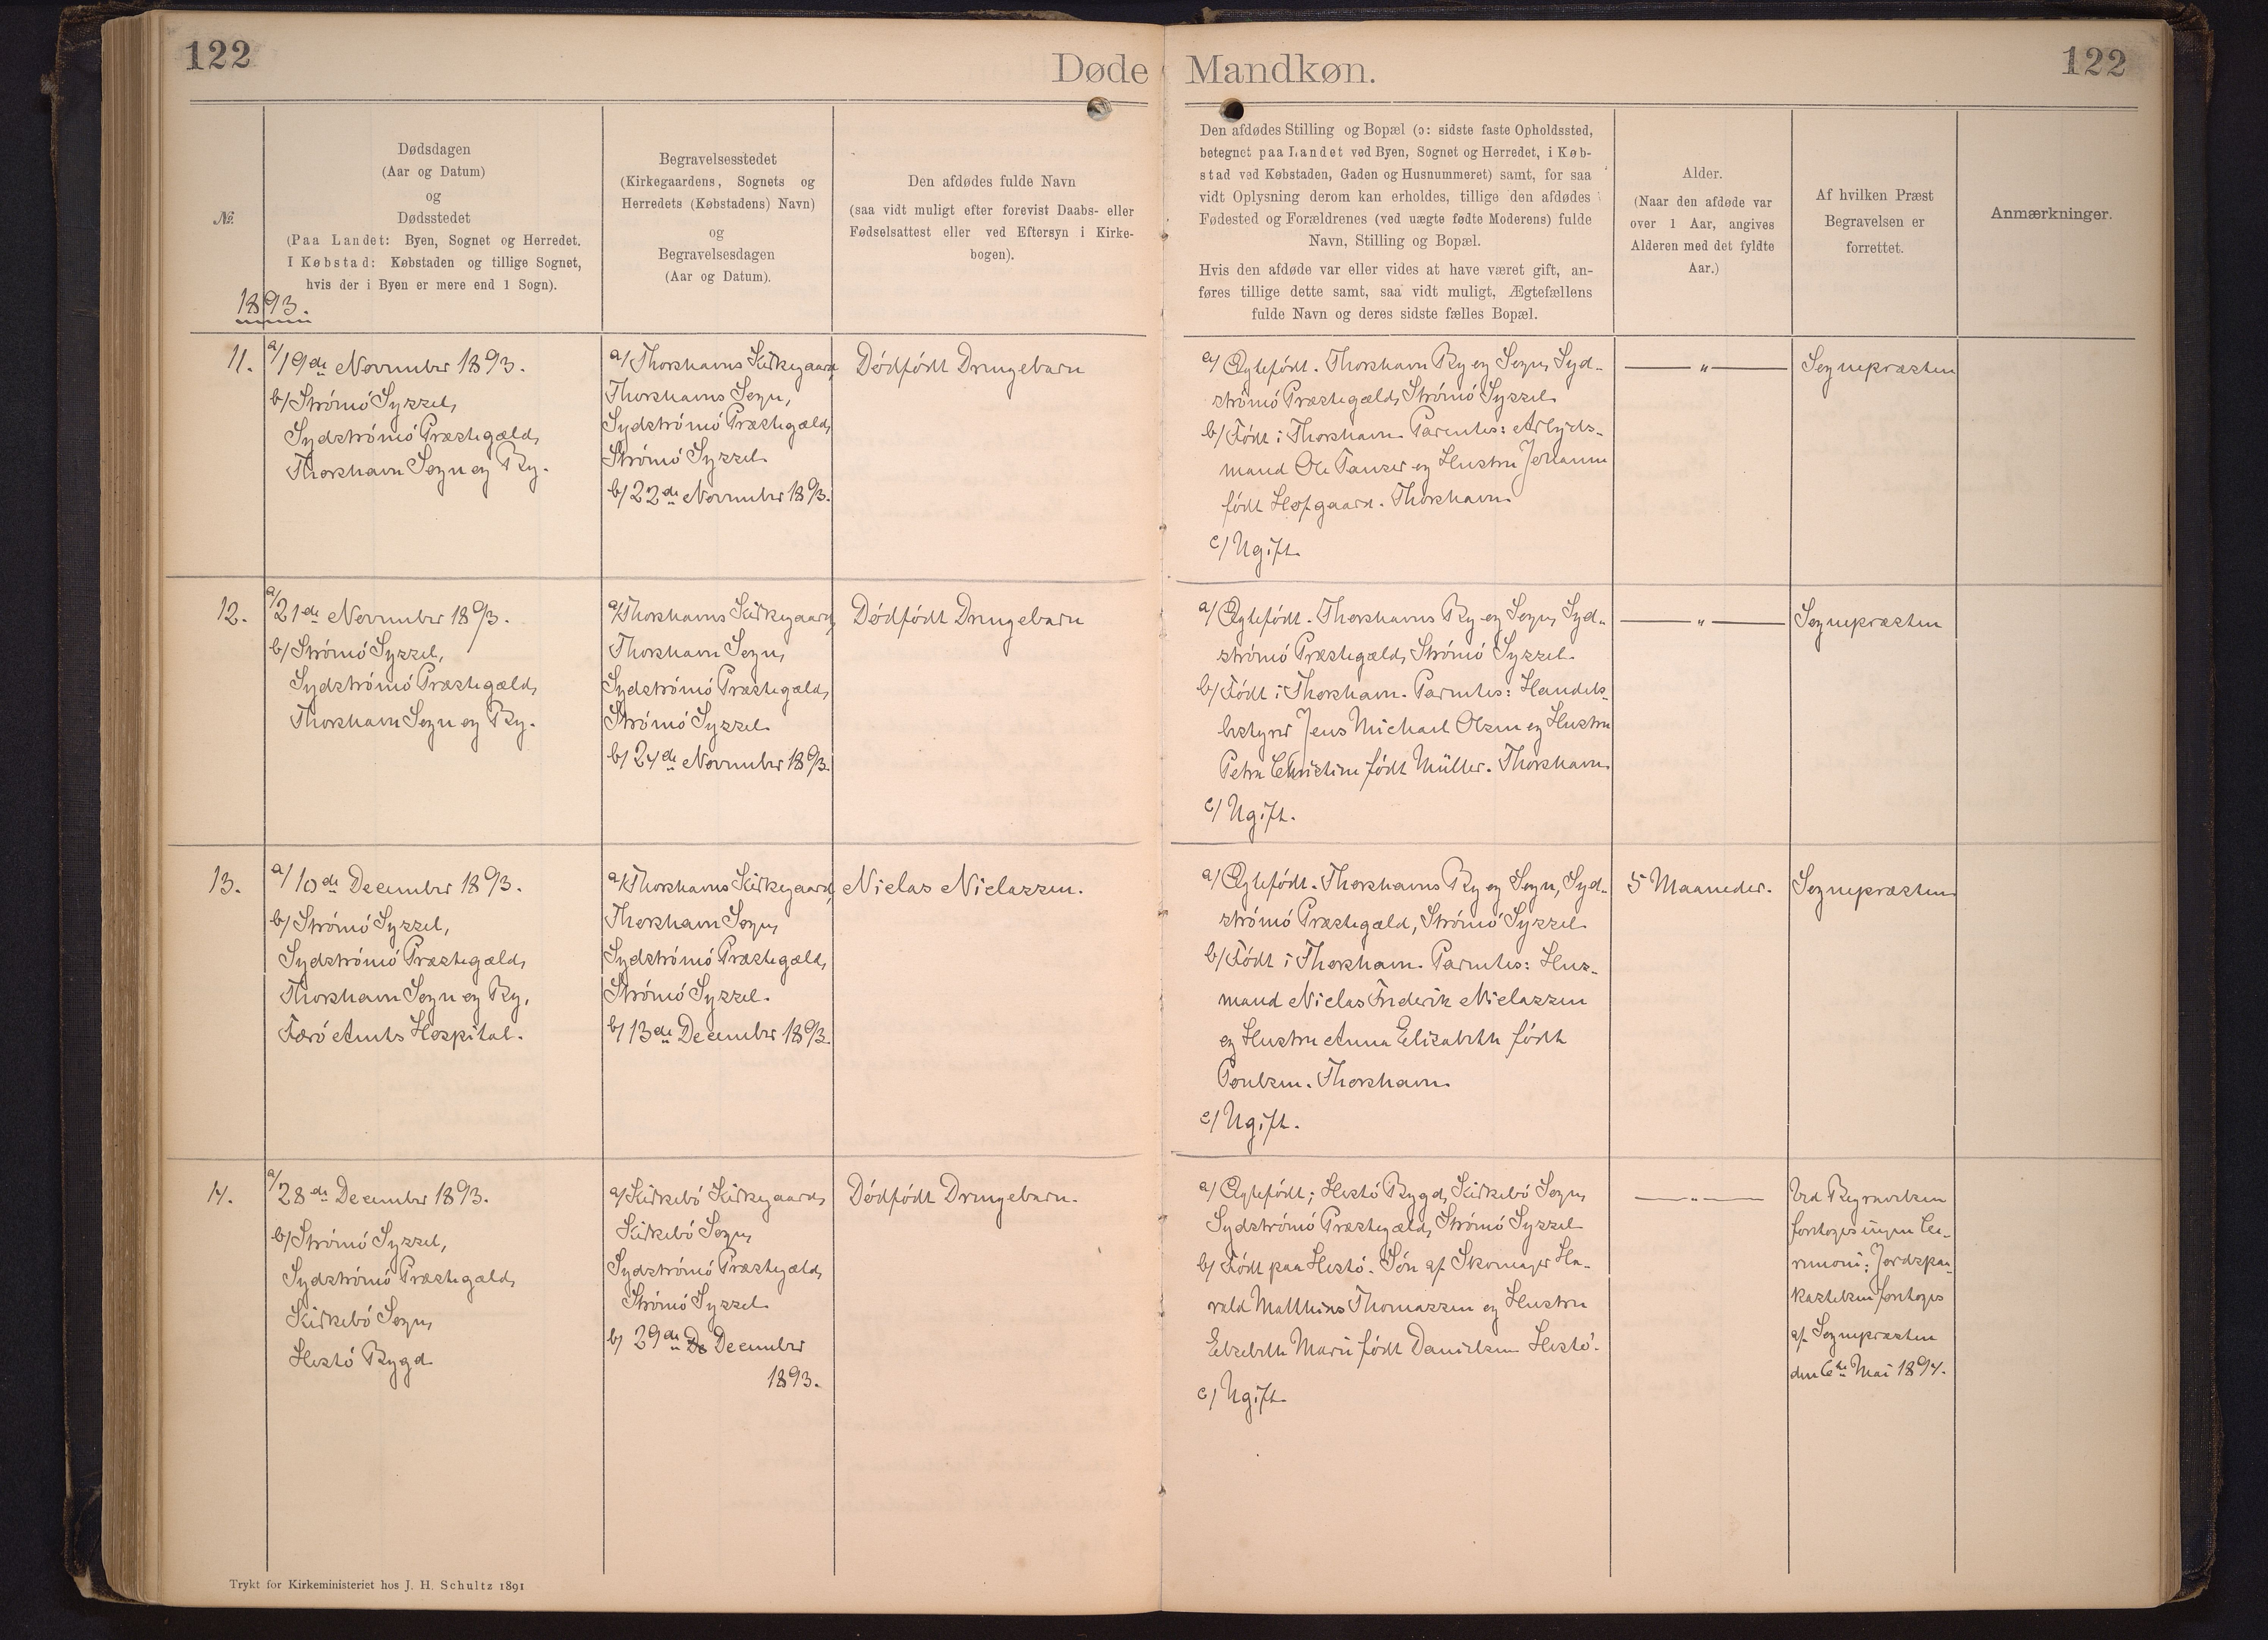 122
Døde Mandkøn.
122
№
Dødsdagen
(Aar og Datum)
og
Dødsstedet
(Paa Landet: Byen, Sognet og Herredet.
I Købstad: Købstaden og tillige Sognet,
hvis der i Byen er mere end 1 Sogn).
Begravelsesstedet
(Kirkegaardens, Sognets og
Herredets (Købstadens) Navn)
og
Begravelsesdagen
(Aar og Datum).
Den afdødes fulde Navn
(saa vidt muligt efter forevist Daabs- eller
Fødselsattest eller ved Eftersyn i Kirke-
bogen).
Den afdødes Stilling og Bopæl (ɔ: sidste faste Opholdssted,
betegnet paa Landet ved Byen, Sognet og Herredet, i Køb-
stad ved Købstaden, Gaden og Husnummeret) samt, for saa
vidt Oplysning derom kan erholdes, tillige den afdødes
Fødested og Forældrenes (ved uægte fødte Moderens) fulde
Navn, Stilling og Bopæl.
Hvis den afdøde var eller vides at have været gift, an-
føres tillige dette samt, saa vidt muligt, Ægtefællens
fulde Navn og deres sidste fælles Bopæl.
Alder.
(Naar den afdøde var
over 1 Aar, angives
Alderen med det fyldte
Aar.)
Af hvilken Præst
Begravelsen er
forrettet.
Anmærkninger.
1893.
11.
a/ 19de November 1893.
b/ Strömö Syssel,
Sydströmö Præstegæld,
Thorshavn Sogn og By.
a/ Thorshavns Kirkegaard,
Thorshavns Sogn,
Sydströmö Præstegæld,
Strömö Syssel.
b/ 22de November 1893.
Dödfödt Drengebarn
a/ Ægtefödt. Thorshavn By og Sogn, Syd-
strömö Præstegæld, Strömö Syssel.
b/ Födt i Thorshavn. Parentes: Arbejds-
mand Ole Hansen og Hustru Johanne
födt Hofgaard. Thorshavn.
c/ Ugift.
— " —
Sognepræsten
12.
a/ 21de November 1893.
b/ Strömö Syssel,
Sydströmö Præstegæld,
Thorshavn Sogn og By.
a/ Thorshavns Kirkegaard,
Thorshavn Sogn,
Sydströmö Præstegæld,
Strömö Syssel.
b/ 24de November 1893.
Dödfödt Drengebarn
a/ Ægtefödt. Thorshavns By og Sogn, Syd-
strömö Præstegæld, Strömö Syssel.
b/ Födt i Thorshavn. Parentes: Handels-
bestyrer Jens Michael Olsen og Hustru
Petra Christine födt Müller. Thorshavn.
c/ Ugift.
— " —
Sognepræsten
13.
a/ 10de December 1893.
b/ Strömö Syssel,
Sydströmö Præstegæld,
Thorshavn Sogn og By,
Færö Amts Hospital.
a/ Thorshavns Kirkegaard,
Thorshavn Sogn,
Sydströmö Præstegæld,
Strömö Syssel.
b/ 13de December 1893.
Niclas Niclassen.
a/ Ægtefödt. Thorshavns By og Sogn, Syd-
strömö Præstegæld, Strömö Syssel.
b/ Födt i Thorshavn. Parentes: Hus-
mand Niclas Frederik Niclassen
og Hustru Anna Elisabeth födt
Poulsen. Thorshavn.
c/ Ugift.
5 Maaneder.
Sognepræsten
14.
a/ 28de December 1893.
b/ Strömö Syssel,
Sydströmö Præstegæld,
Kirkebö Sogn,
Hestö Bygd.
a/ Kirkebö Kirkegaard,
Kirkebö Sogn,
Sydströmö Præstegæld,
Strömö Syssel.
b/ 29de De December
1893.
Dödfödt Drengebarn.
a/ Ægtefödt; Hestö Bygd, Kirkebö Sogn,
Sydströmö Præstegæld, Strömö Syssel.
b/ Födt paa Hestö. Sön af Skomager Ha-
rald Matthias Thomassen og Hustru
Elsebeth Marie födt Danielsen Hestö.
c/ Ugift.
— " —
Ved Begravelsen
foretoges ingen Ce-
remoni; Jordspaa-
kastelsen foretoges
af Sognepræsten
den 6te Mai 1894.
Trykt for Kirkeministeriet hos J. H. Schultz 1891